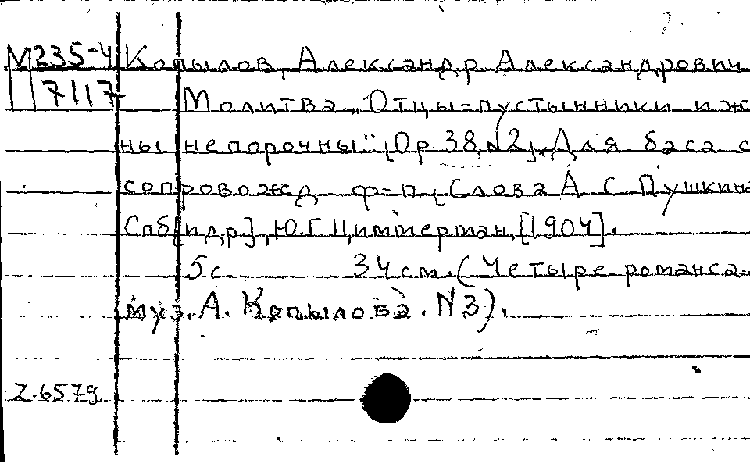 М235-4 Копылов, Александр Александрович
7117 Молитва „Отцы-пустынники и ж
ны непорочны". [Op. 38, N2]. Для баса с
сопровожд. ф-п. [Слова А. С. Пушкин
Спб [и др.], Ю.Г. Циммерман, [1904].
5 с. 34 см. (Четыре романса.
муз. А. Копылова. N3).
Z.657g